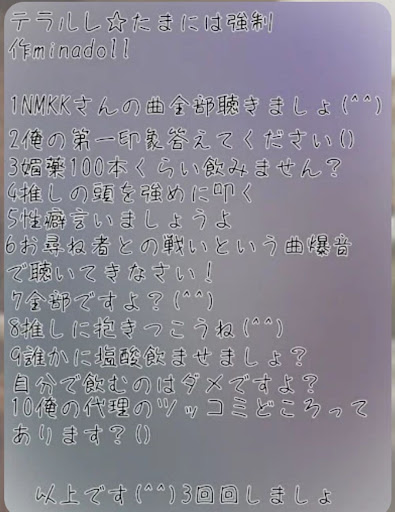 テラルし☆たまには強制
作minadoll
1NMKKさんの曲全部聴きましょ(^^)
2俺の第一印象答えてください()
3媚薬100本くらい飲みません？
4推しの頭を強めに叩く
5性癖言いましょうよ
6お尋ね者との戦いという曲爆音
で聴いてきなさい！
7全部ですよ？(^^)
8推しに抱きつこうね(^^)
9誰かに塩酸飲ませましょ？
自分で飲むのはダメですよ？
10俺の代理のツッコミどころって
あります？()
以上です(^^)3回回しましょ